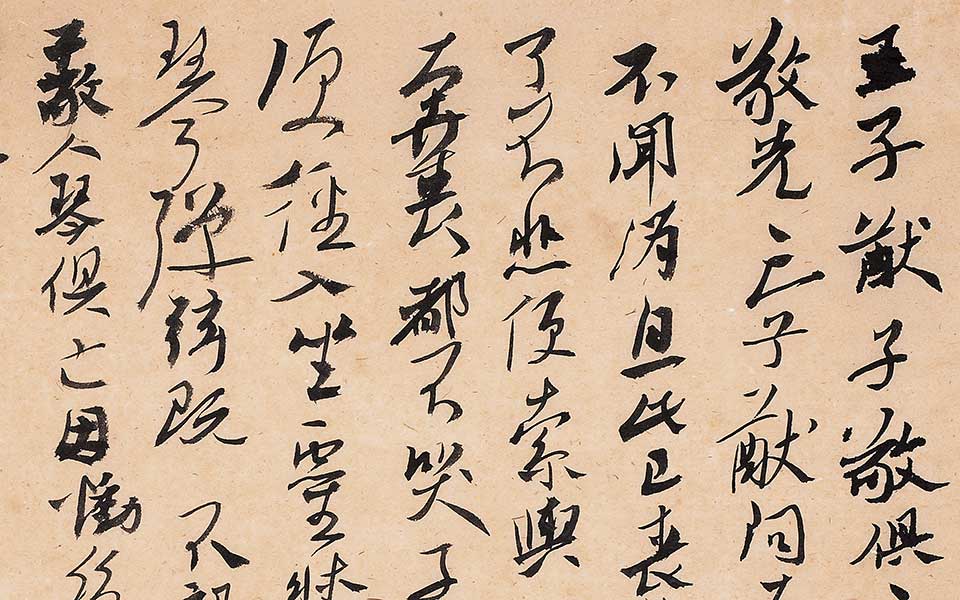 王子猷子敬俱
敬先亡子猷問
不聞消息此已喪
了不悲便索輿
来奔喪都不哭子
便徑入坐靈牀
琴彈弦既不
敬人琴俱亡因慟